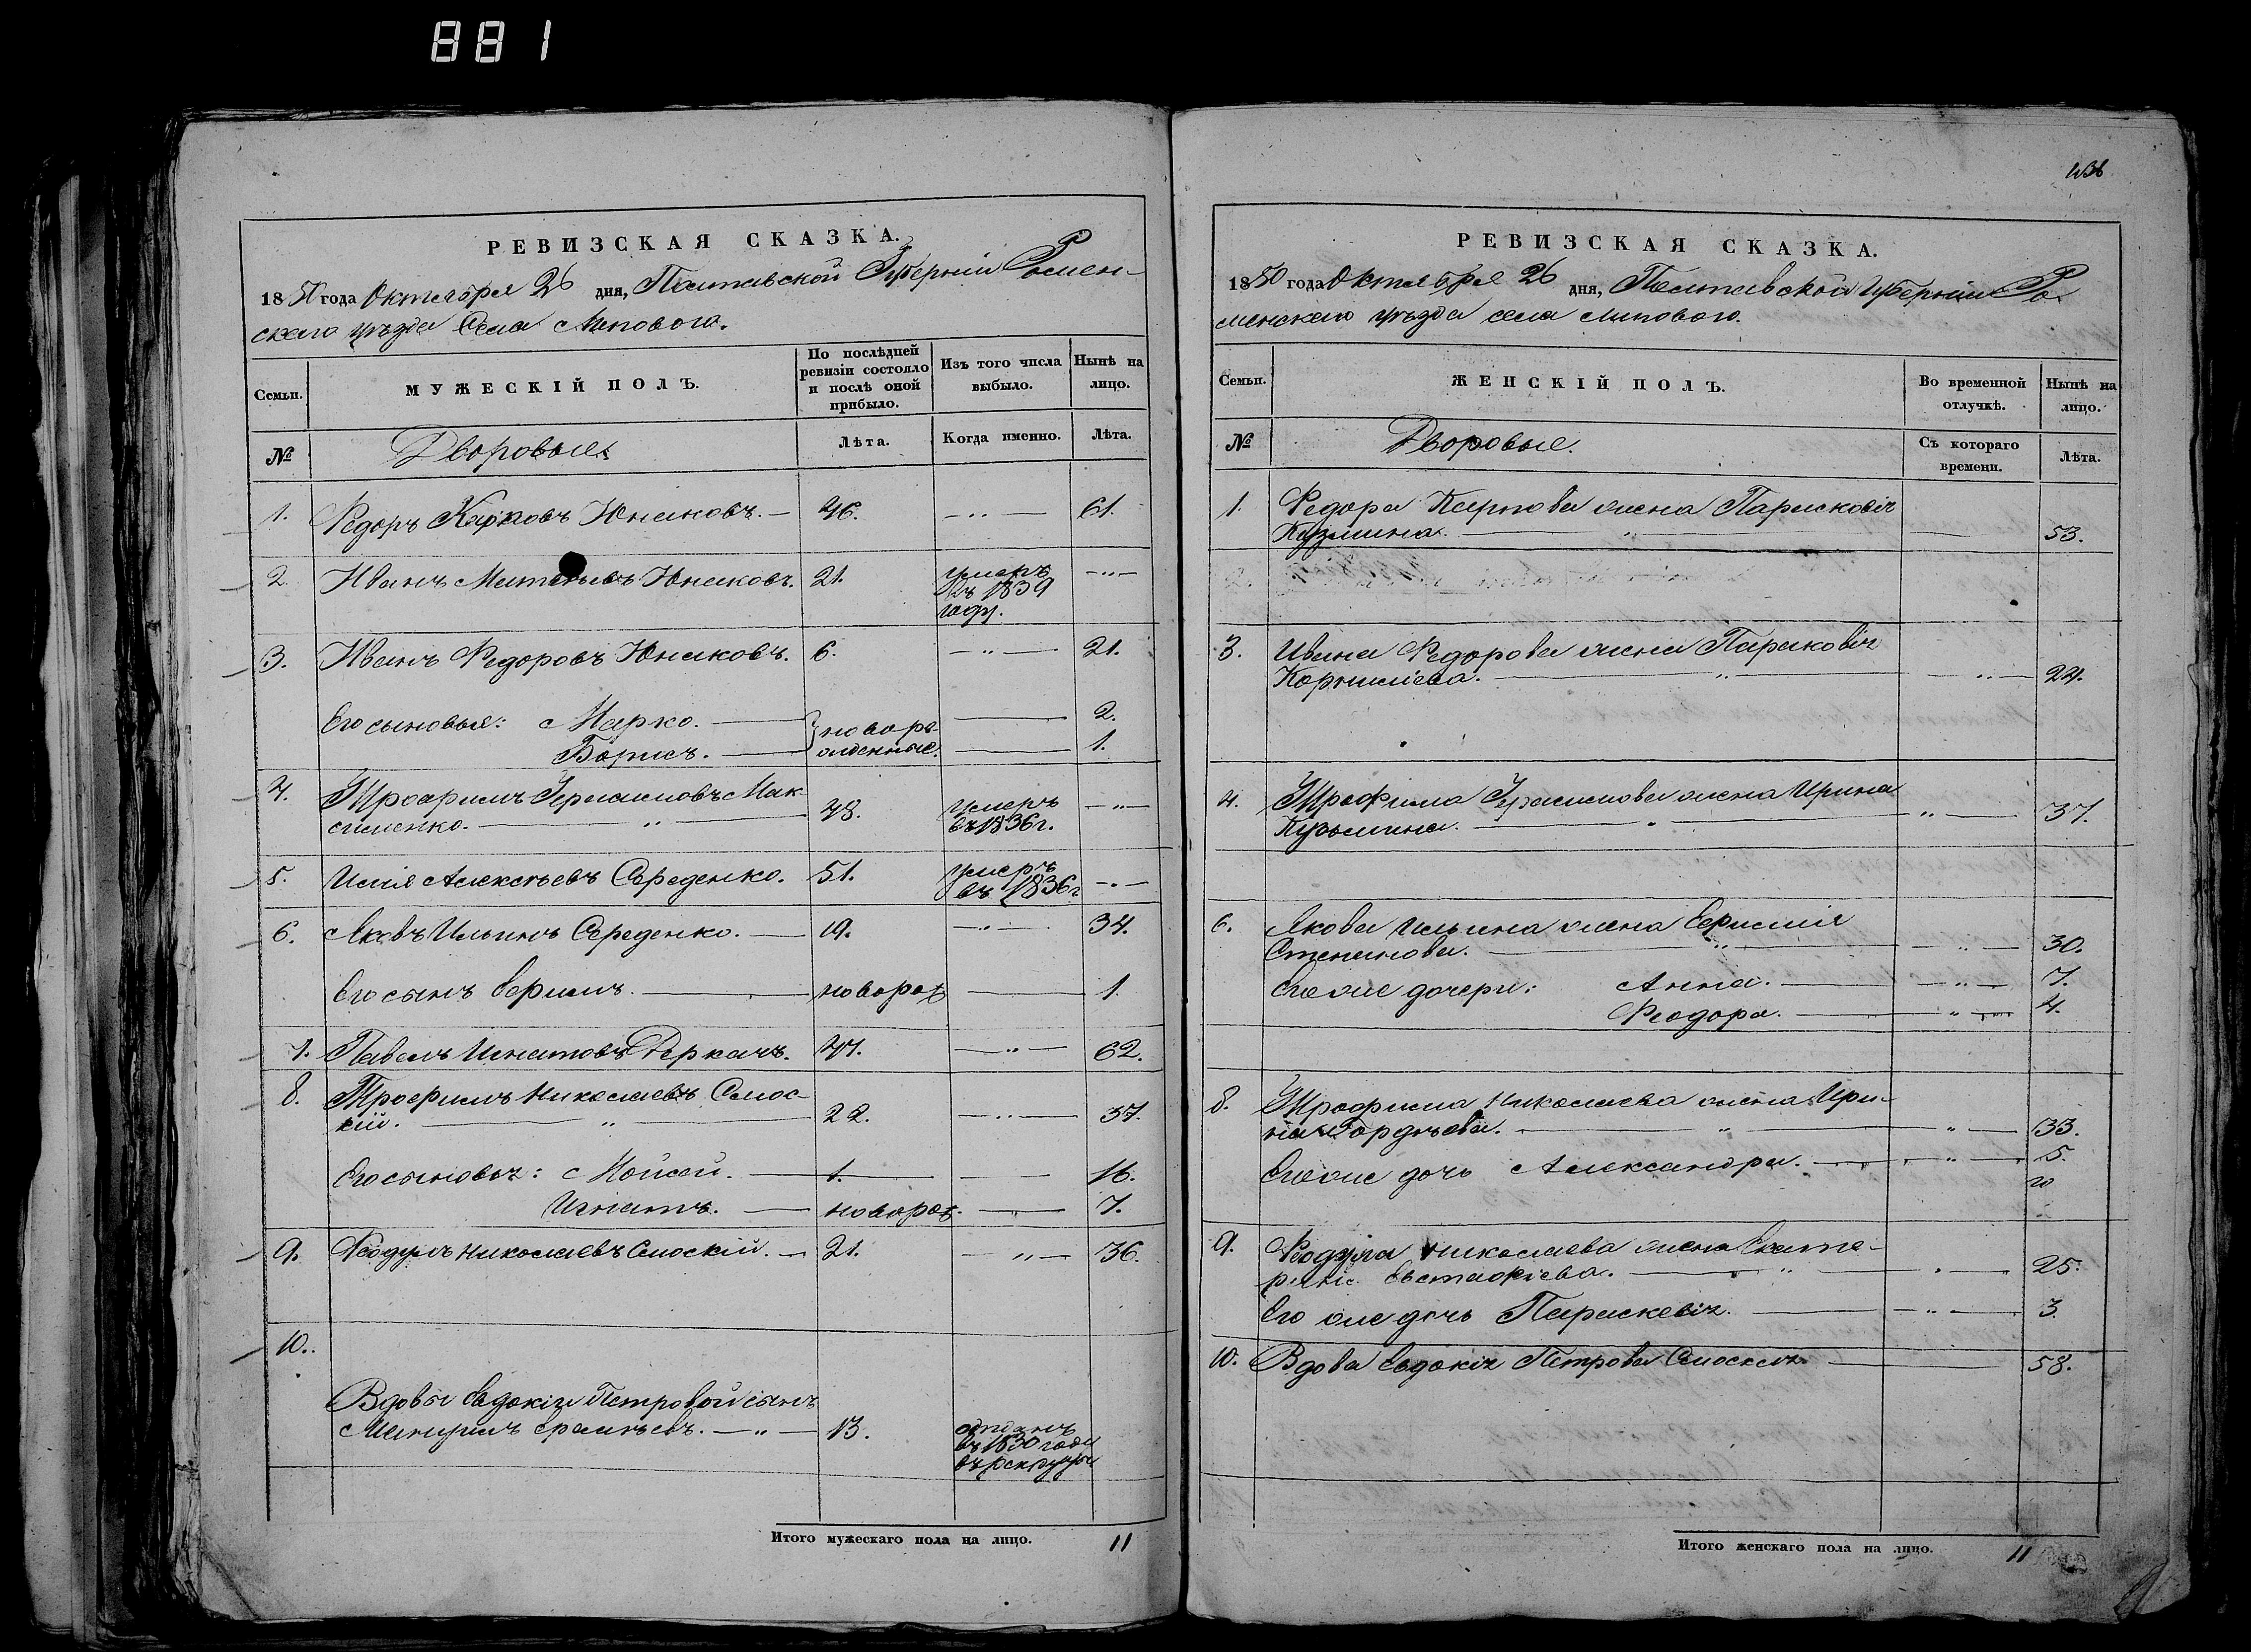 881
РЕВИЗСКАЯ СКАЗКА.
1850 года Октября 26 дня, Полтавской Губерніи Ромен-
скаго уѣзда Села Липового.
Семьи.
МУЖЕСКІЙ ПОЛЪ.
По послѣдней ревизіи состояло и послѣ оной прибыло.
Изъ того числа выбыло.
Нынѣ на лицо.
№
Дворовые
Лѣта.
Когда именно.
Лѣта.
1. Федоръ Карповъ Юнаковъ. — 46. — " — 61.
2. Иванъ Матвѣевъ Юнаковъ. 21. умеръ — " —
въ 1839
году.
3. Иванъ Федоровъ Юнаковъ. 6. — " — 21.
Его сыновья: Марко. — новоро- — 2.
Борисъ. — жденные. — 1.
4. Трофимъ Герасимовъ Мак-
сименко. — " — 48. умеръ — " —
въ 1836 г.
5. Илія Алексѣевъ Середенко. 51. умеръ — " —
въ 1836 г
6. Яковъ Ильинъ Середенко. — 19. — " — 34.
Его сынъ Ефимъ. — новорож — 1.
7. Павелъ Игнатовъ Деркачъ. 47. — " — 62.
8. Трофимъ Николаевъ Смос-
кій. — " — 22. — " — 37.
Его сыновья: Мойсей. — 1. — 16.
Игнатъ. — новорож. — 7.
9. Феодулъ Николаевъ Смоскій. — 21. — " — 36.
10.
Вдовы Евдокіи Петровой сынъ
— " — 13. отданъ
въ 1830 году
въ рекруты
Итого мужескаго пола на лицо. 11
РЕВИЗСКАЯ СКАЗКА.
1850 года Октября 26 дня, Полтавской Губерніи Ро-
менскаго уѣзда села Липового.
Семьи.
ЖЕНСКІЙ ПОЛЪ.
Во временной отлучкѣ.
Нынѣ на лицо.
№
Дворовые.
Съ котораго времени.
Лѣта.
1. Федора Карпова жена Парасковія
Кузмина. — " — 53.
3. Ивана Федорова жена Парасковія
Корниліева. — " — " — 24.
4. Трофима Герасимова жена Ирина
Кузьмина. — " — " — 37.
6. Якова Ильина жена Ефимія
Степанова. — " — " — 30.
Его же дочери: Анна. — " — 7.
Феодора. — " — 4.
8. Трофима Николаева жена Ири-
на Гордѣева. — " — " — 33.
Его же дочь Александра. — " — 5.
9. Феодула Николаева жена Екате-
рина Евстафіева. — " — 25.
Его же дочь Параскевія. — " — 3.
10. Вдова Евдокія Петрова Смоская — 58.
Итого женскаго пола на лицо. 11